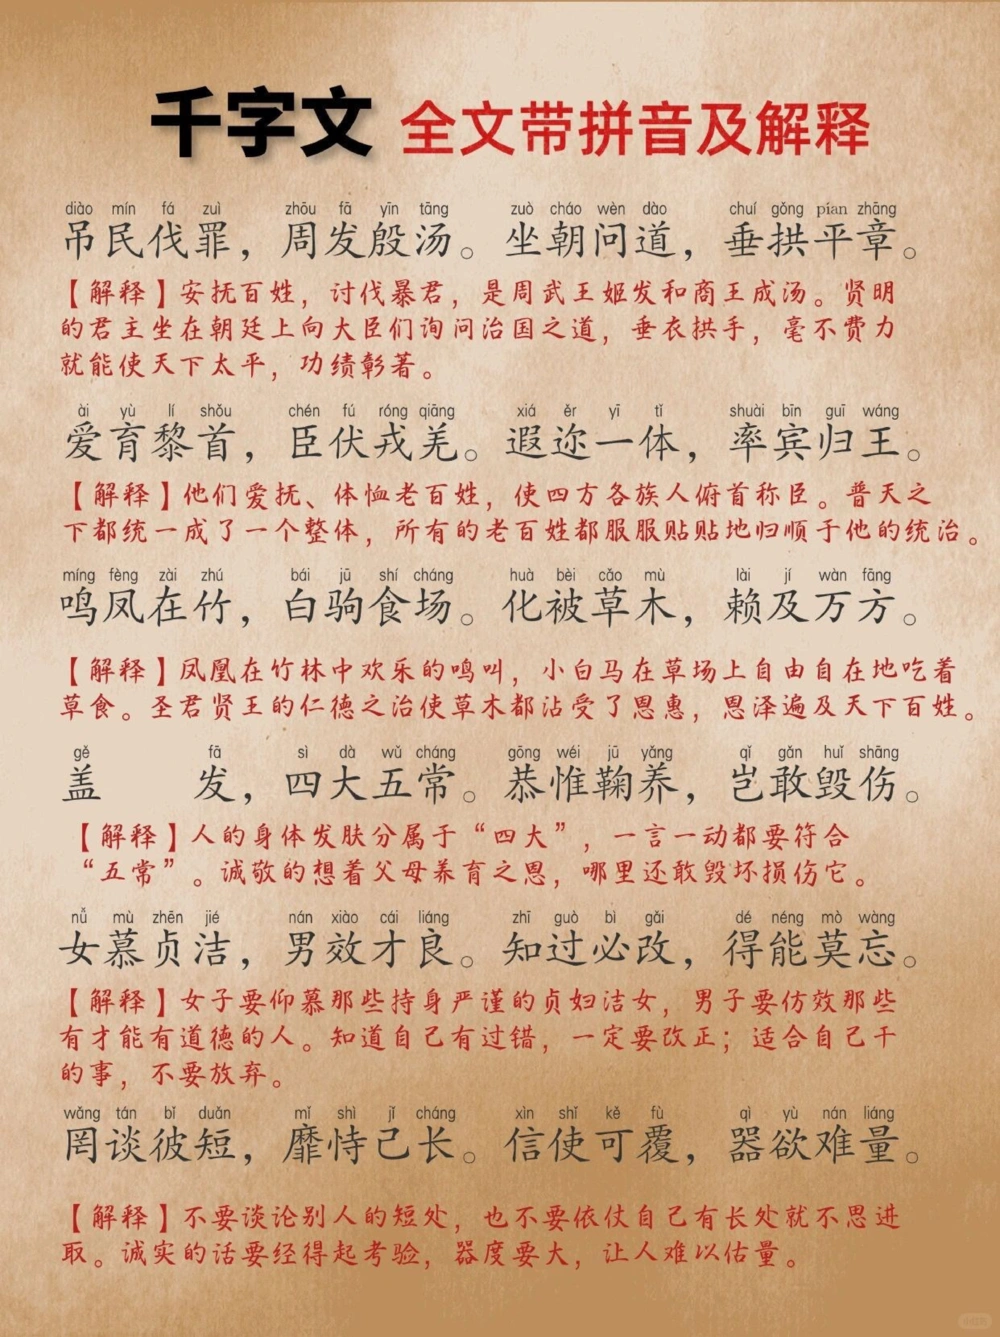 千字文 全文带拼音及解释
diào mín fá zuì zhōu fā yīn tāng zuò cháo wèn dào chuí gǒng pián zhāng
吊民伐罪，周发殷汤。坐朝问道，垂拱平章。
【解释】安抚百姓，讨伐暴君，是周武王姬发和商王成汤。贤明
的君主坐在朝廷上向大臣们询问治国之道，垂衣拱手，毫不费力
就能使天下太平，功绩彰著。
ài yù lí shǒu chén fú róng qiāng xiá ěr yī tǐ shuài bīn guī wáng
爱育黎首，臣伏戎羌。遐迩一体，率宾归王。
【解释】他们爱抚、体恤老百姓，使四方各族人俯首称臣。普天之
下都统一成了一个整体，所有的老百姓都服服贴贴地归顺于他的统治。
míng fèng zài zhú bái jū shí cháng huà bèi cǎo mù lài jí wàn fāng
鸣凤在竹，白驹食场。化被草木，赖及万方。
【解释】凤凰在竹林中欢乐的鸣叫，小白马在草场上自由自在地吃着
草食。圣君贤王的仁德之治使草木都沾受了恩惠，恩泽遍及天下百姓。
gě fā sì dà wǔ cháng gōng wéi jū yǎng qǐ gǎn huǐ shāng
盖 发，四大五常。恭惟鞠养，岂敢毁伤。
【解释】人的身体发肤分属于“四大”，一言一动都要符合
“五常”。诚敬的想着父母养育之恩，哪里还敢毁坏损伤它。
nǚ mù zhēn jié nán xiào cái liáng zhī guò bì gǎi dé néng mò wàng
女慕贞洁，男效才良。知过必改，得能莫忘。
【解释】女子要仰慕那些持身严谨的贞妇洁女，男子要仿效那些
有才能有道德的人。知道自己有过错，一定要改正；适合自己干
的事，不要放弃。
wǎng tán bǐ duǎn mǐ shì jǐ cháng xìn shǐ kě fù qì yù nán liáng
罔谈彼短，靡恃己长。信使可覆，器欲难量。
【解释】不要谈论别人的短处，也不要依仗自己有长处就不思进
取。诚实的话要经得起考验，器度要大，让人难以估量。